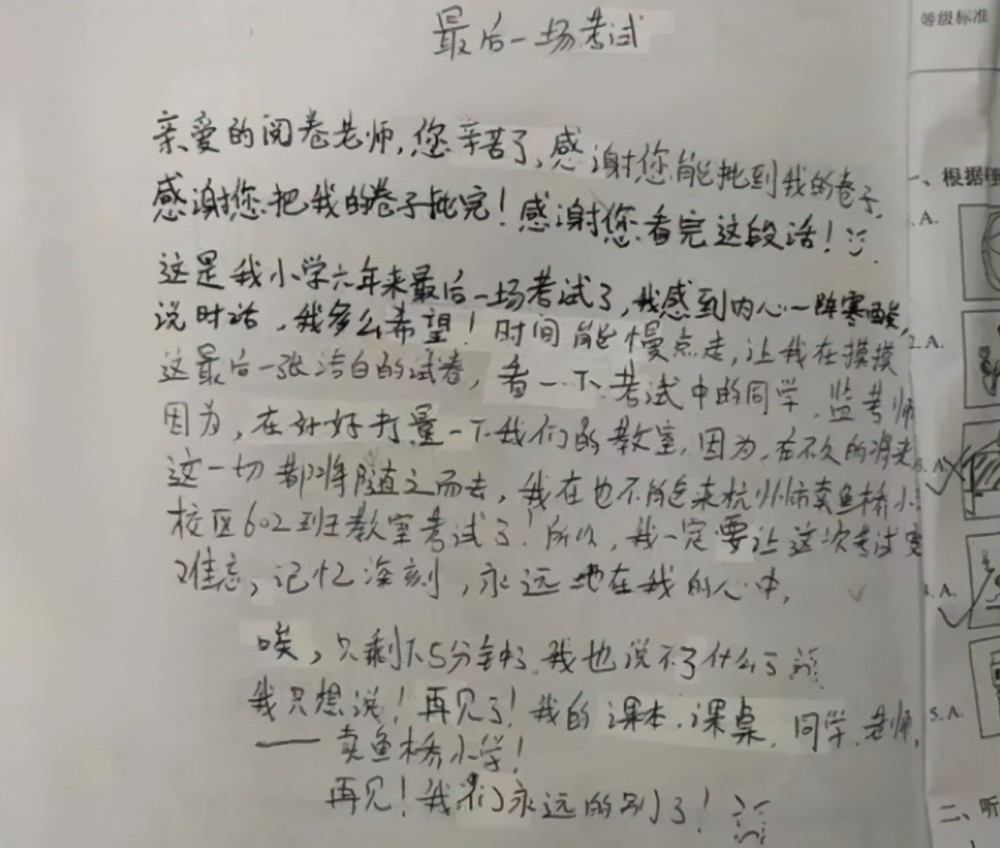 最后一场考试
亲爱的阅卷老师,您辛苦了,感谢您能批到我的卷子,
感谢您把我的卷子批完!感谢您看完这段话!
这是我小学六年来最后一场考试了,我感到内心一阵寒酸,
说时话,我多么希望!时间能慢点走,让我在摸摸
这最后一张洁白的试卷,看一下考试中的同学、监考师
因为,在好好打量一下我们的教室,因为,在不久的将来
这一切都将随之而去,我在也不能来杭州市卖鱼桥小
校区602班教室考试了!所以,我一定要让这次考试变
难忘,记忆深刻,永远地在我的心中,
唉,只剩下5分钟了,我也说不了什么了
我只想说!再见了!我的课本、课桌、同学、老师,
——卖鱼桥小学!
再见!我们永远的别了!
等级标准
一、根据
.A.
2.A.
A.
A.
5.A.
二、听